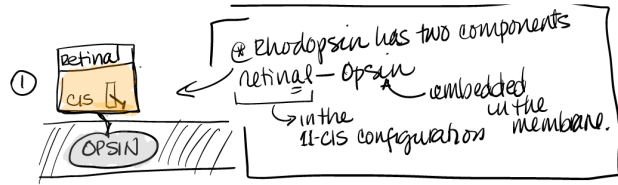 ①
Retinal
cis
OPSIN
* Rhodopsin has two components
retinal - Opsin
embedded
in the
membrane.
in the
11-cis configuration